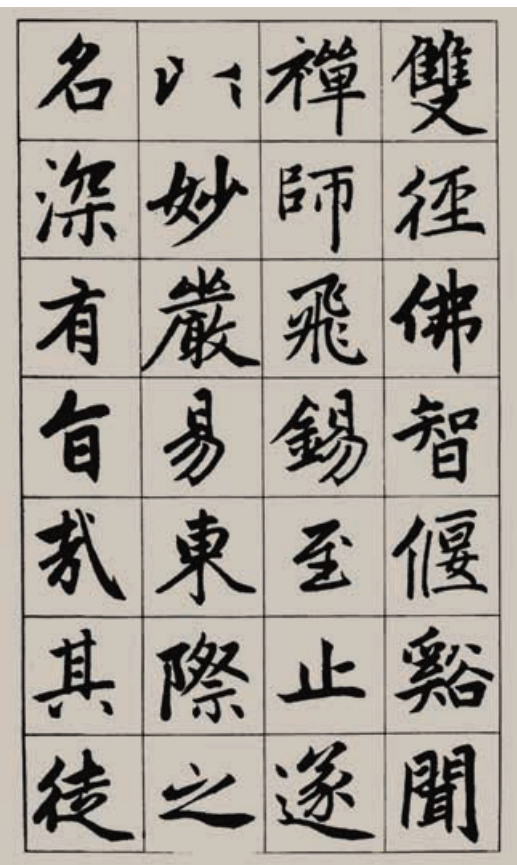 雙徑佛智偃谿聞
禪師飛錫至止遂
以妙嚴易東際之
名深有旨哉其徒